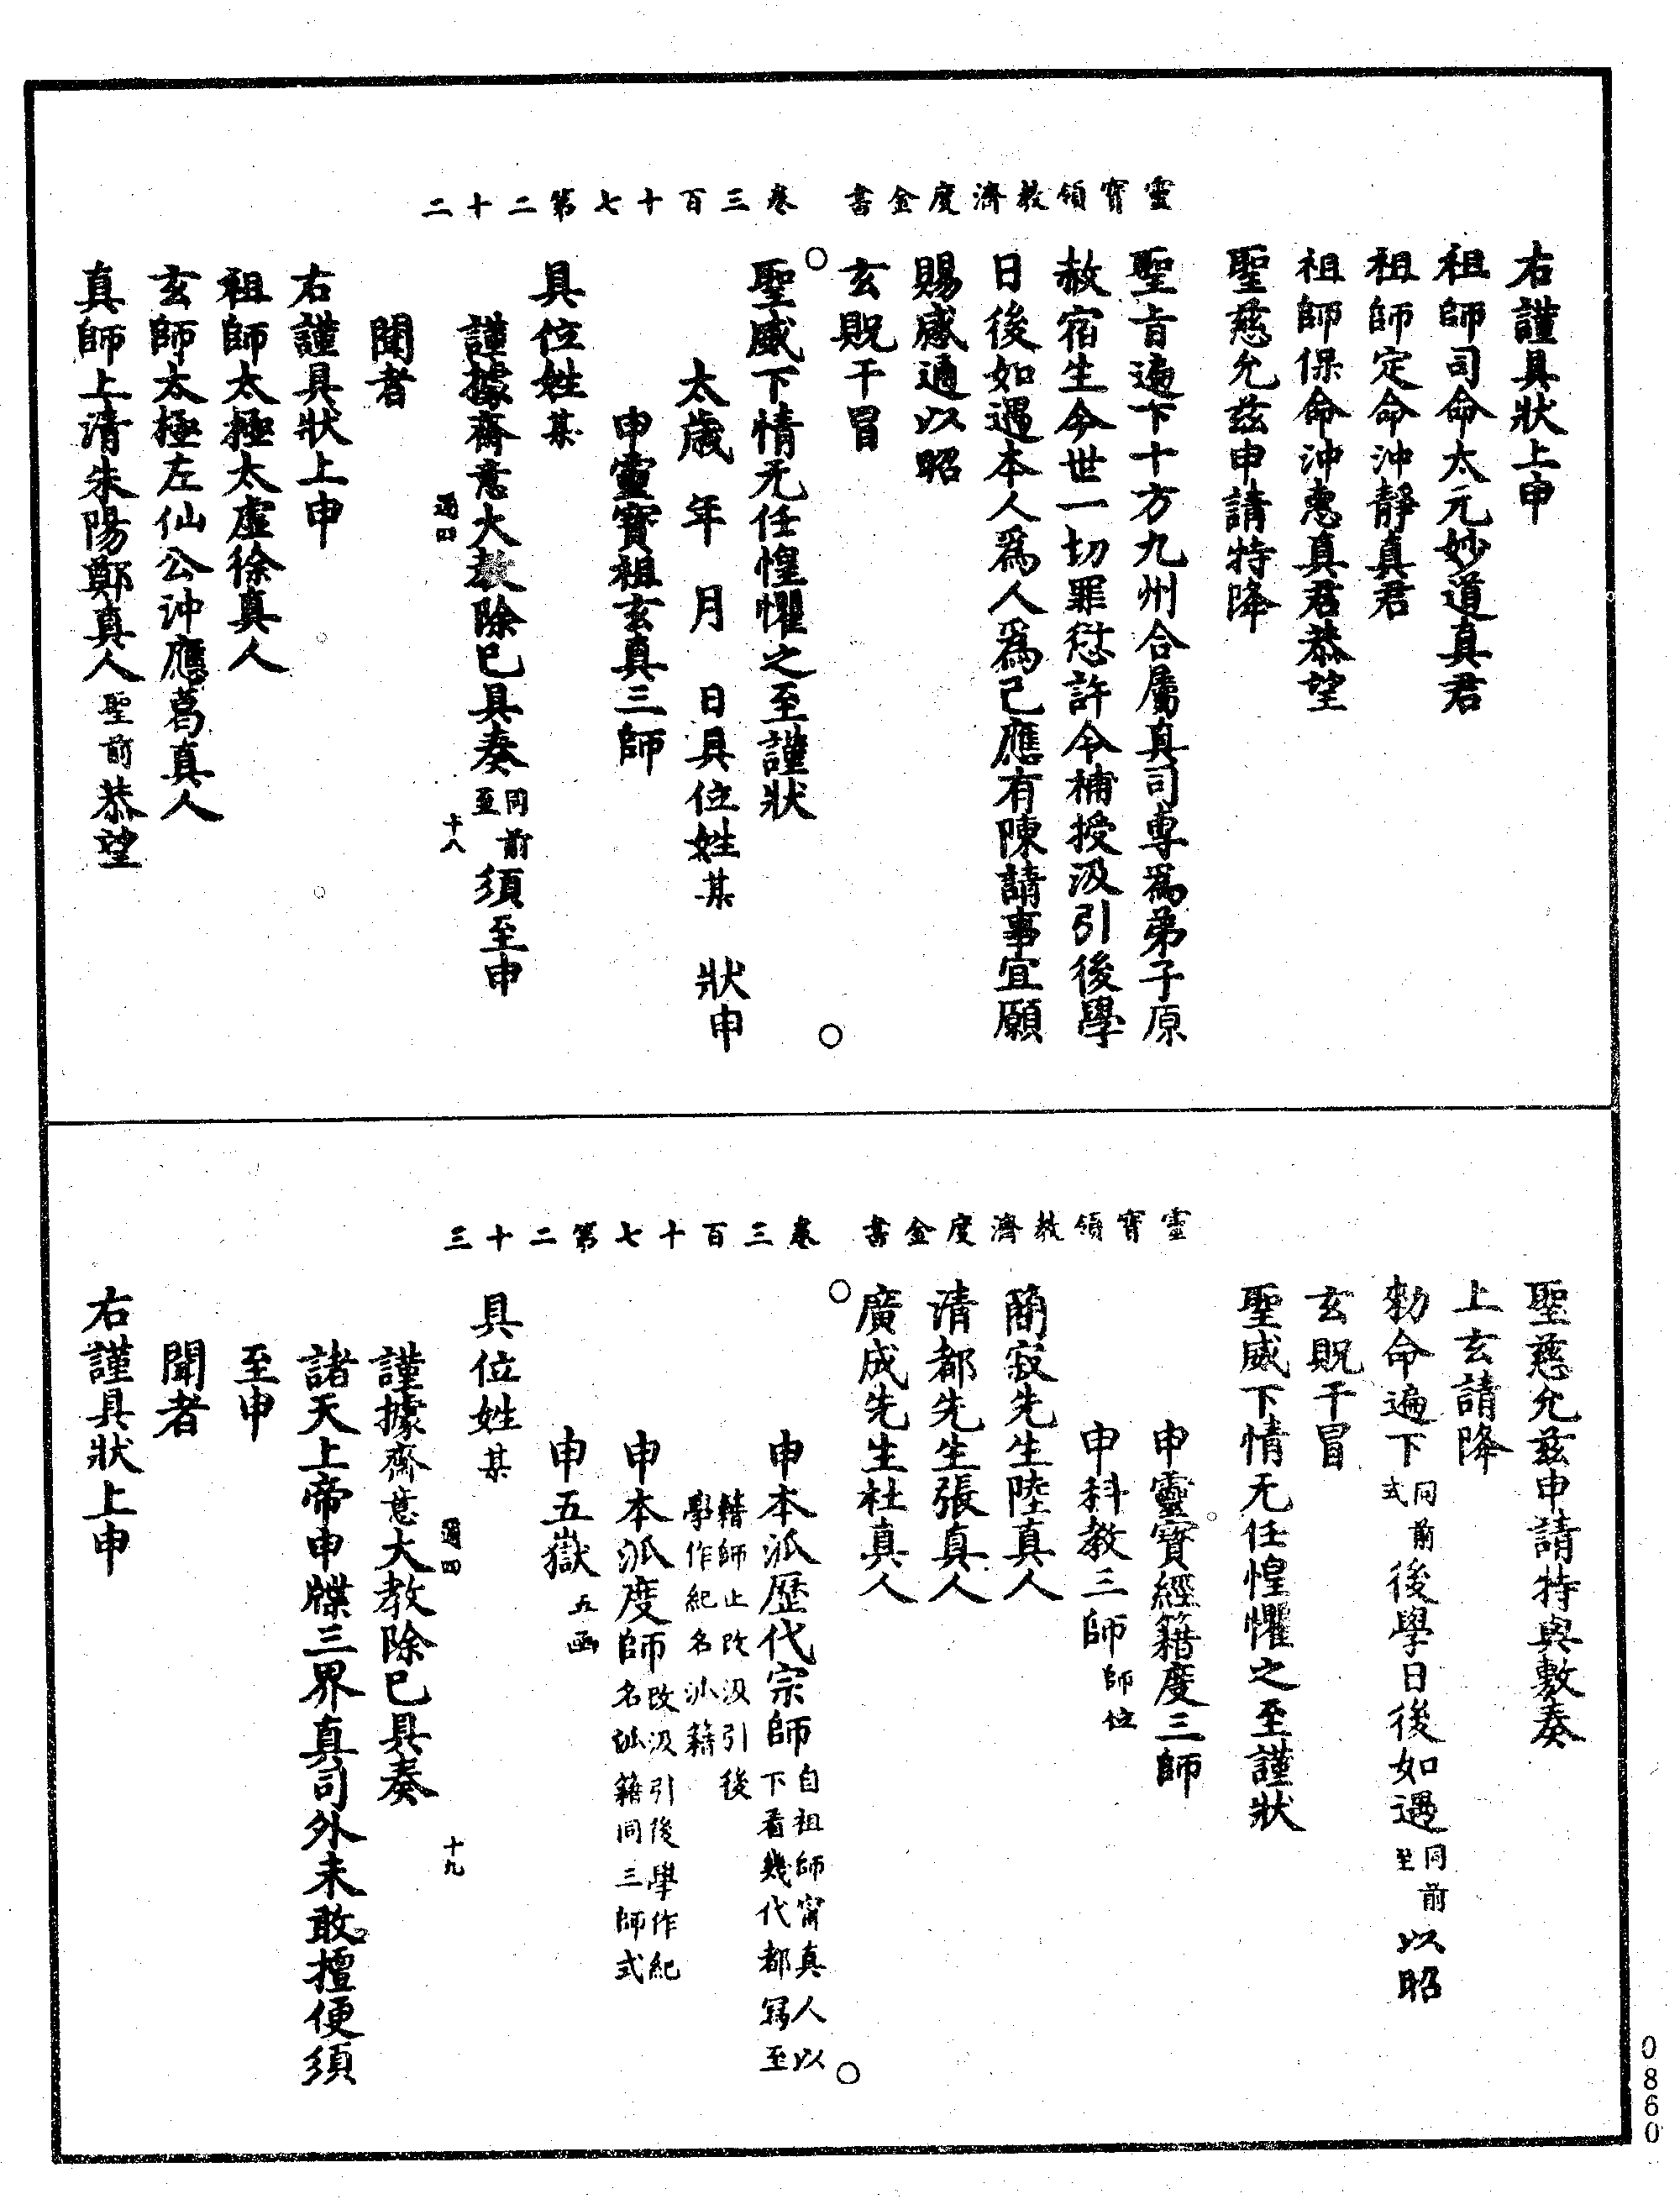 靈寶領教濟度金書　卷三百十七第二十二
右謹具狀上申
祖師司命太元妙道真君
祖師定命沖靜真君
祖師保命沖惠真君恭望
聖慈允茲申請特降
聖旨遍下十方九州合屬真司專爲弟子原
赦宿生今世一切罪愆許令補授汲引後學
日後如遇本人爲人爲己應有陳請事宜願
賜感通以昭
玄貺干冒
聖威下情无任惶懼之至謹狀
太歲　年　月　日具位姓某　狀申
申靈寶祖玄真三師
具位姓某
謹據齋意大教除已具奏同前至須至申
通四　十八
聞者
右謹具狀上申
祖師太極太虛徐真人
玄師太極左仙公沖應葛真人
真師上清朱陽鄭真人聖前恭望
靈寶領教濟度金書　卷三百十七第二十三
聖慈允茲申請特與敷奏
上玄請降
勑命遍下同前式後學日後如遇同前至以昭
玄貺干冒
聖威下情无任惶懼之至謹狀
申靈寶經籍度三師
申科教三師師位
簡寂先生陸真人
清都先生張真人
廣成先生杜真人
申本派歷代宗師自祖師甯真人以下看幾代都寫至
籍師止改汲引後學作紀名派籍
申本派度師改汲引後學作紀名派籍同三師式
申五嶽五函
具位姓某
通四　十九
謹據齋意大教除已具奏
諸天上帝申牒三界真司外未敢擅便須
至申
聞者
右謹具狀上申
0860